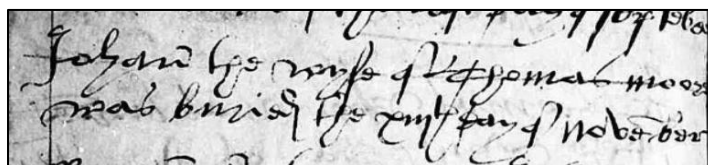 Johan the wyfe of Thomas moore
was buried the day of november